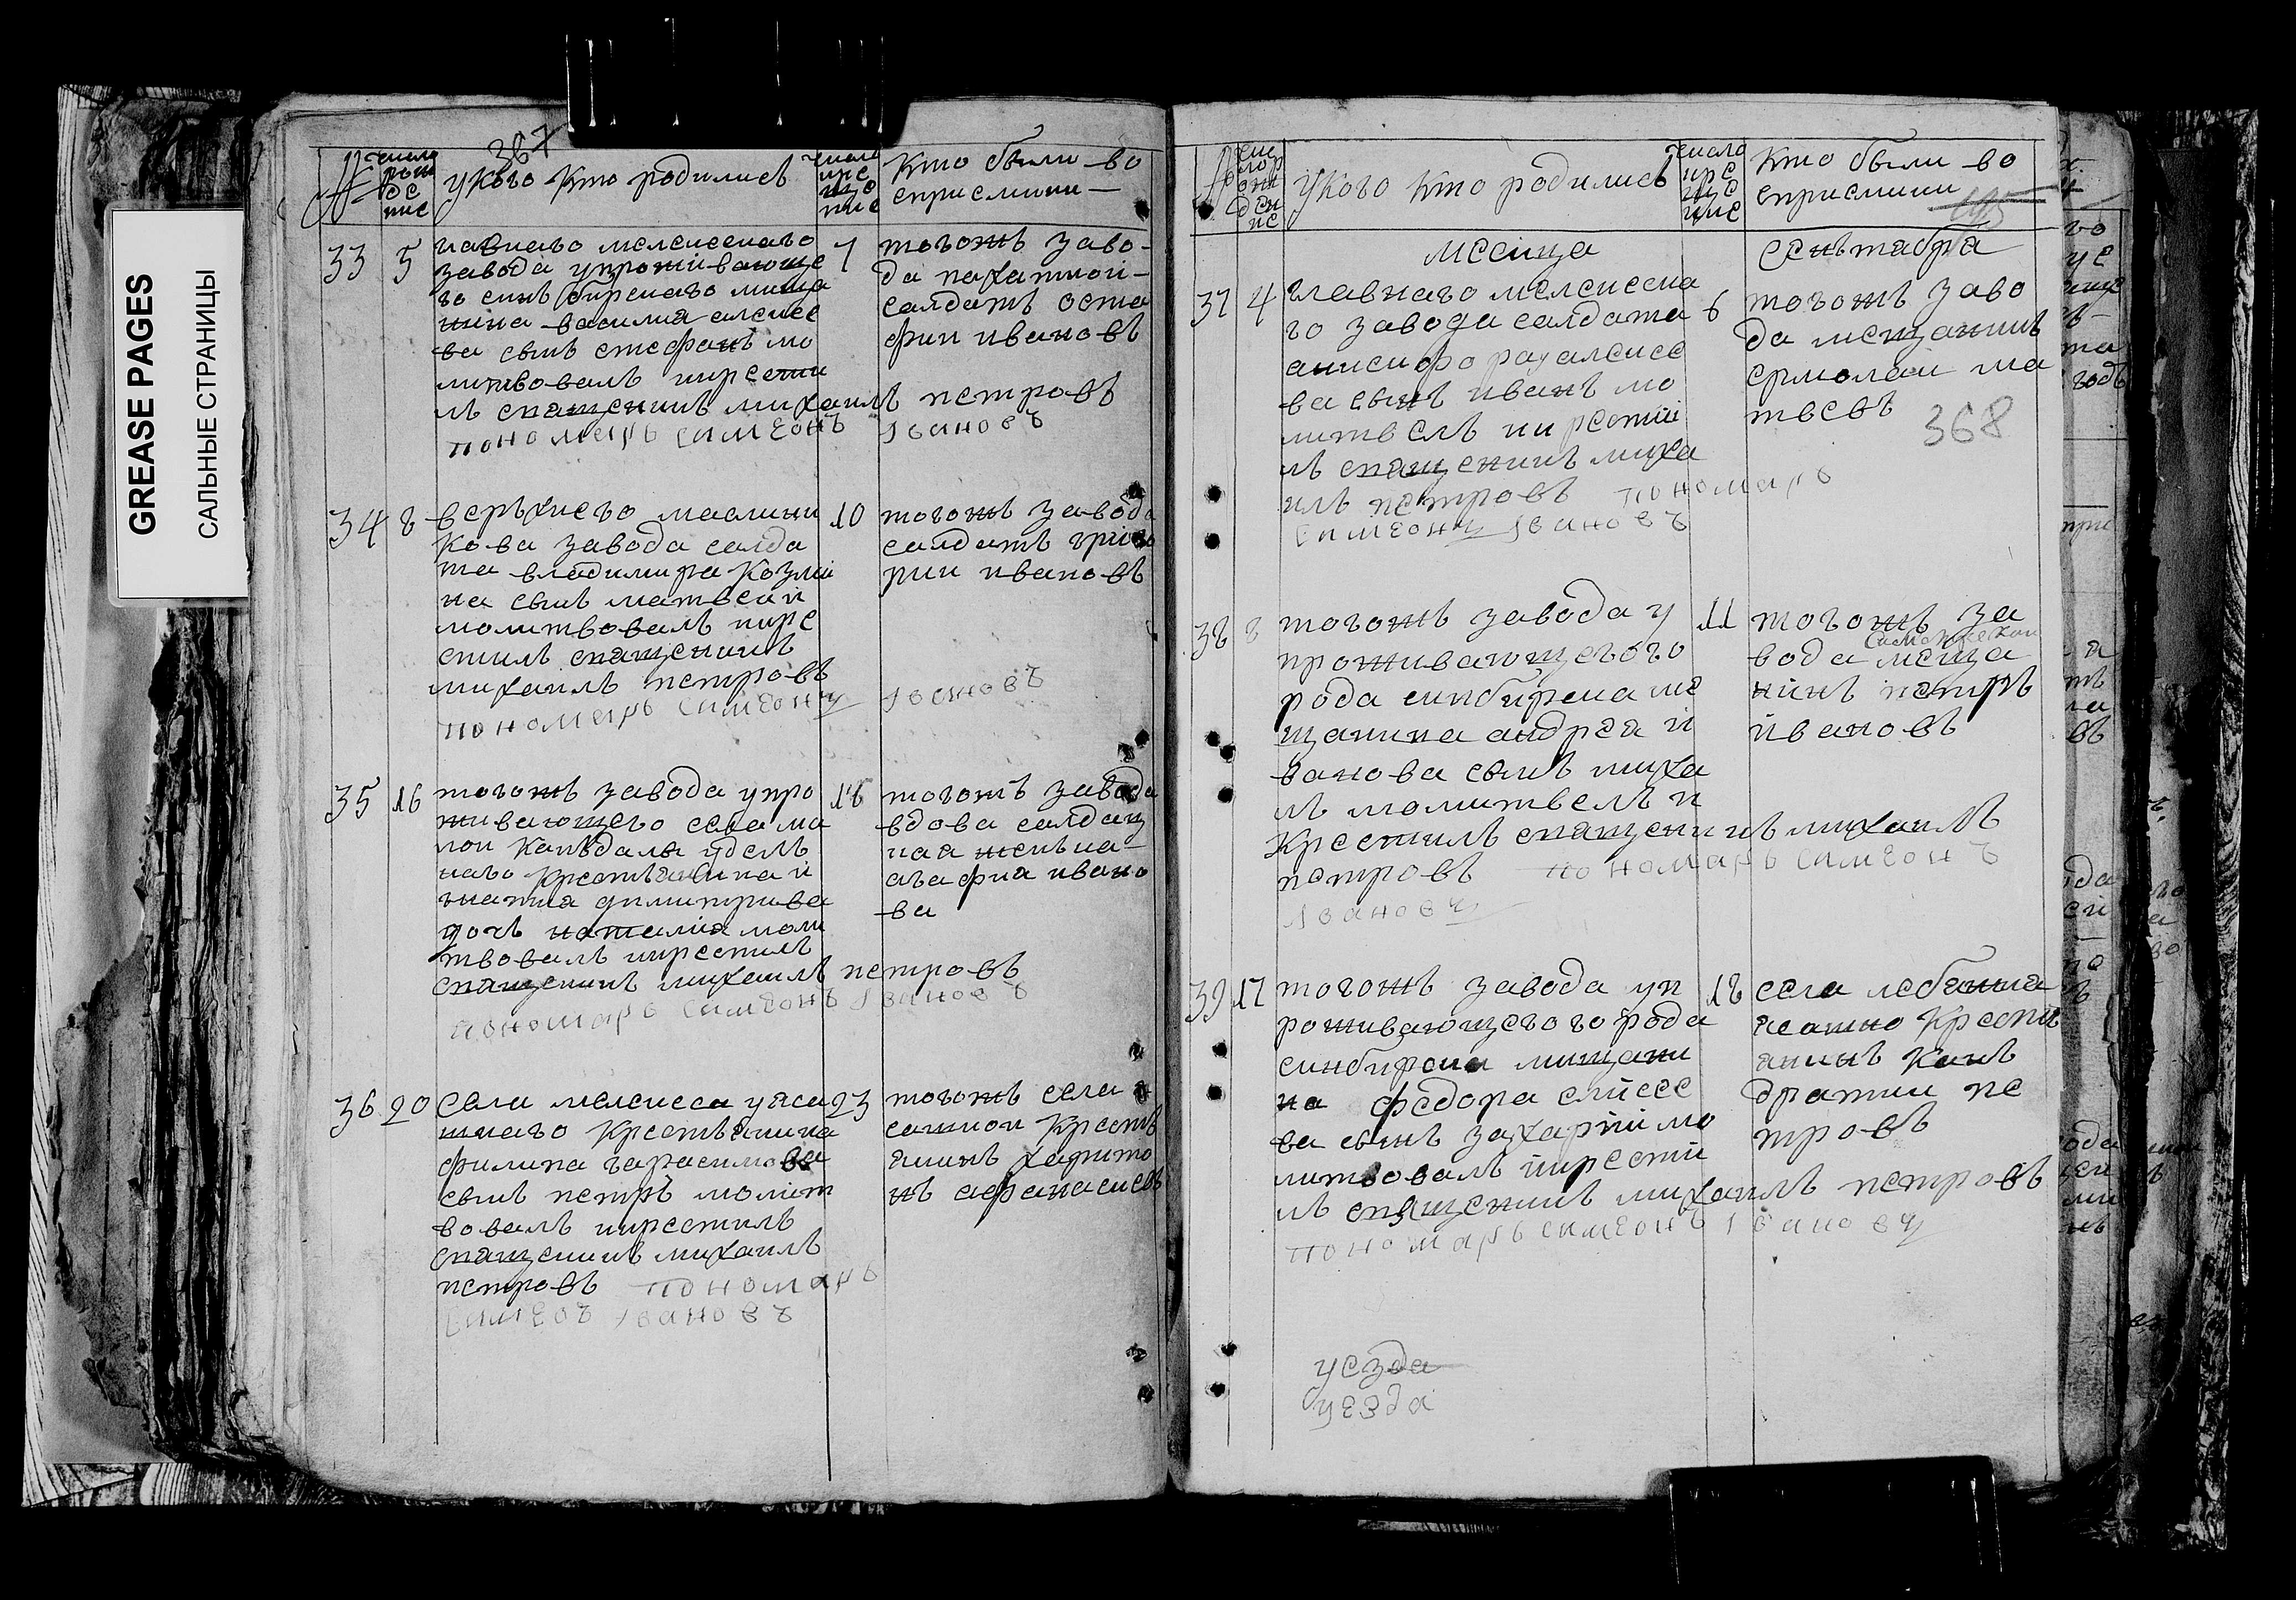 GREASE PAGES
САЛЬНЫЕ СТРАНИЦЫ
367
№
число рож де ние
у кого кто родились
число кре ще ние
кто были во
сприемники
33 5
главнаго мелекескаго
завода у проживающе
го синбирскаго меща
нина василия алексее
ва сынъ стефанъ мо
литвовалъ икрести
лъ священникъ михаилъ петровъ
пономарь Симеонъ Iвановъ
7
тогожъ заво
да пахатной
салдатъ оста
фии ивановъ
34 8
верхнего
кова завода салда
та владимира козми
на сынъ матвеи
молитвовалъ икре
стилъ священникъ
михаилъ петровъ
пономарь Симеонъ Iвановъ
10
тогожъ завода
салдатъ григо
рии ивановъ
35 16
тогожъ завода у про
живающего села ма
лои кандалы удель
наго крестьянина и
гнатия димитриева
дочь наталия моли
твовалъ икрестилъ
священникъ михаилъ петровъ
пономарь Симеонъ Iвановъ
18
тогожъ завода
вдова салдац
кая женька
агафиа ивано
ва
36 20
Села мелекеса у яса
шнаго крестьянина
филипа гарасимова
сынъ петръ молит
вовалъ икрестилъ
священникъ михаилъ
петровъ пономарь
Симеоъ Iвановъ
23
тогожъ села я
сашнои кресть
янинъ харито
нъ афанасиевъ
№
чис ло р ож ден ие
у кого кто родились
число кре ще ние
кто были во
сприемники
месяца сеньтабра
368
37 4
главнаго мелекеска
го завода салдата
анисифора алексее
ва сынъ иванъ мо
литвелъ икрести
лъ священникъ миха
илъ петровъ пономарь
Симеонъ Iвановъ
6
тогожъ заво
да мещанинъ
ермолаи ма
твевъ
38 8
тогожъ завода у
проживающегого
рода синбирска ме
щанина андрея и
ванова сынъ миха
лъ молитвелъ и
крестилъ священникъ михаилъ
петровъ пономарь Симеонъ
Iвановъ
11
тогожъ за
вода меща
нинъ петръ
ивановъ
39 17
тогожъ завода уп
роживающегогорода
синбирска мищани
на федора елисее
ва сынъ захарий мо
литвовалъ икрести
лъ священникъ михаилъ петровъ
пономарь симеонъ Iвановъ
18
села лебяжья
ясашно кресть
янинъ кан
дратии пе
тровъ
уезда
уезда